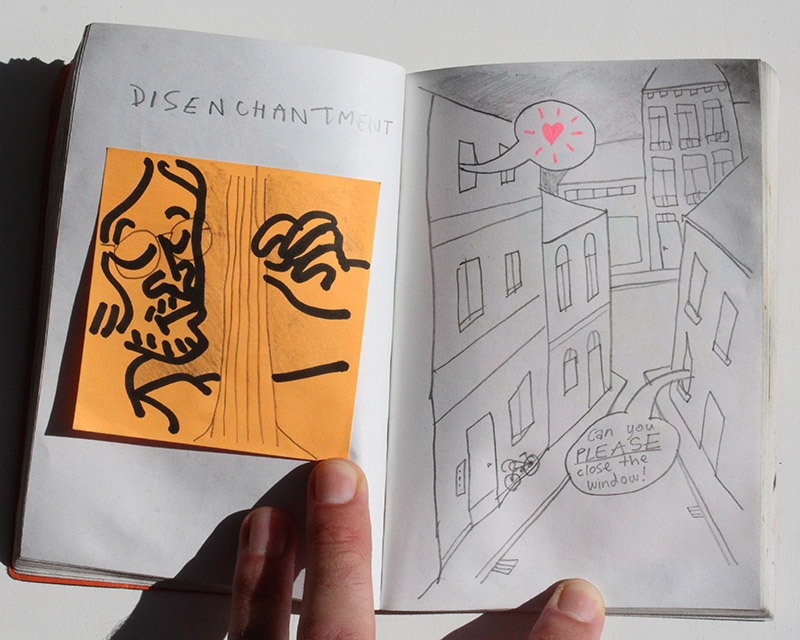 DISENCHANTMENT
Can you
PLEASE
close the
window!